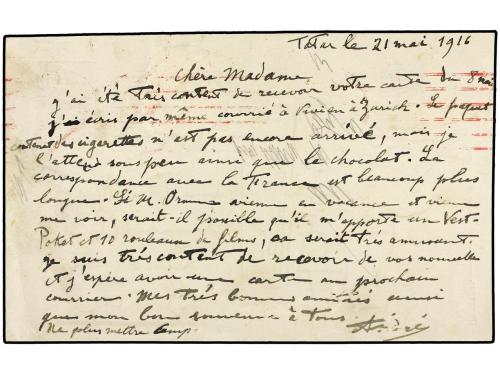 Tatar le 21 mai 1916
Chère Madame
j'ai été très content de recevoir votre carte du 8 mai
j'ai écris par même courrié à Vivien à Zurich. Le paquet
contenet des cigarettes n'est pas encore arrivé, mais je
l'attend sous peu ainsi que le chocolat. La
correspondance avec la France est beaucoup plus
longue. Si M. vienne en vacance et viene
me voir, serait-il possible qu'il m'apporte un Vest-
Poket et 10 rouleaux de films, ca serait très amusant.
je suis très content de recevoir de vos nouvelles
et j'espère avoir une carte au prochain
courrier. Mes très bonnes amitiés ainsi
que mon bon souvenir à tous. André
Ne plus mettre Camp.